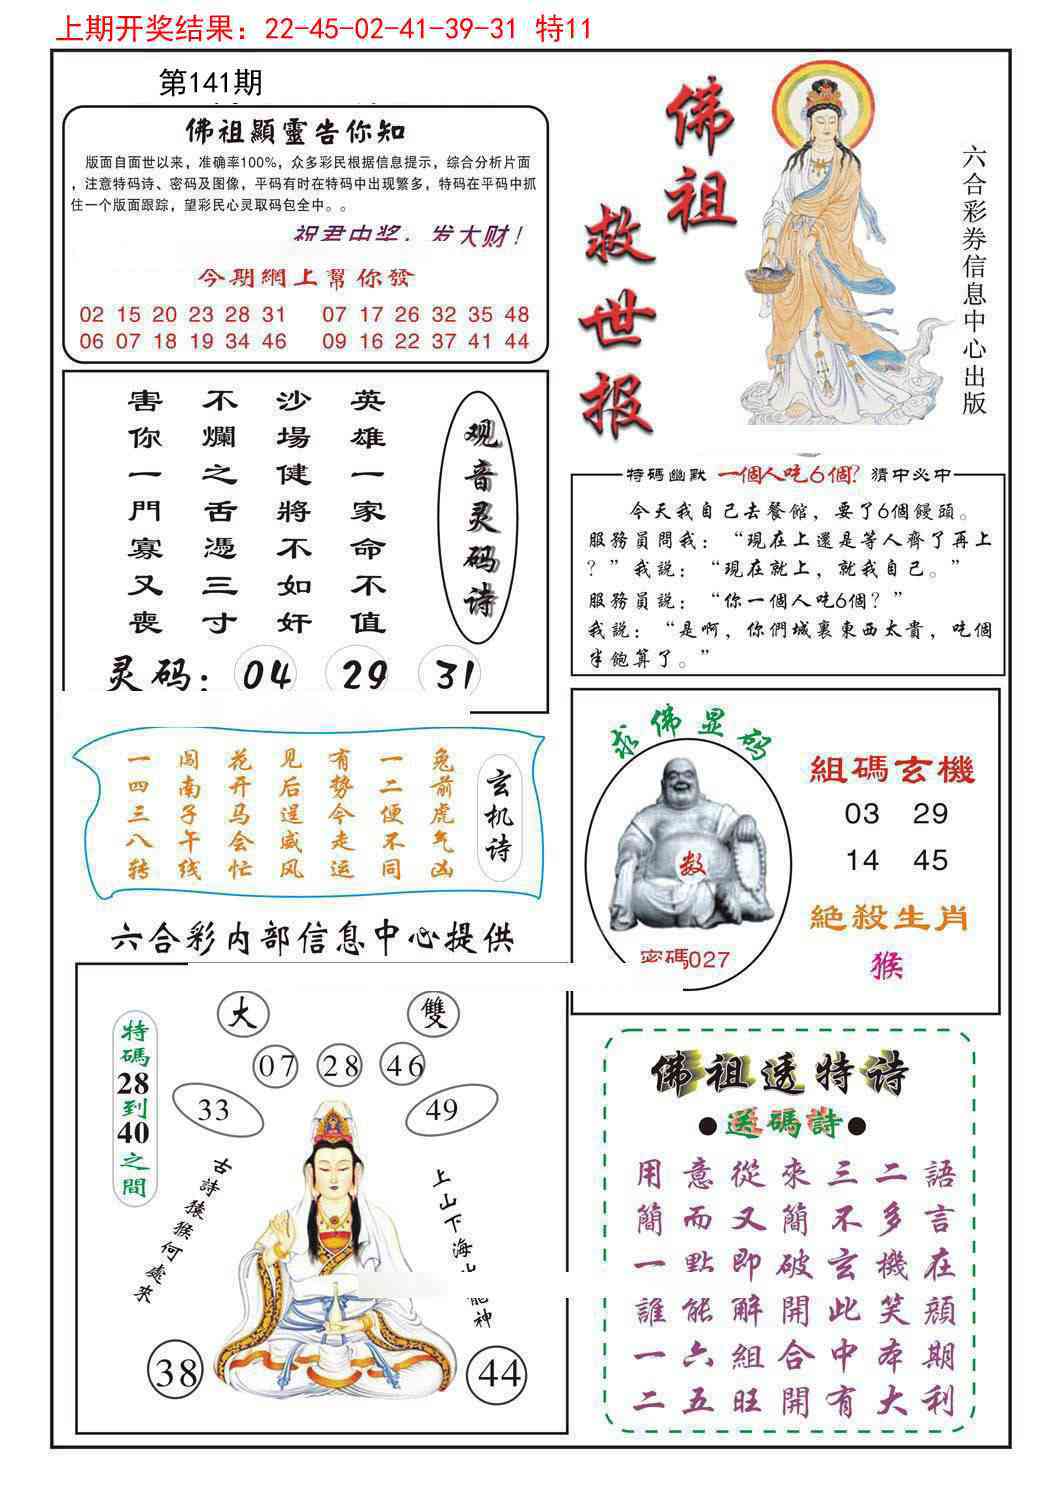 上期开奖结果：22-45-02-41-39-31 特11
第141期
佛祖顯靈告你知
版面自面世以来，准确率100%，众多彩民根据信息提示，综合分析片面
，注意特码诗、密码及图像，平码有时在特码中出现繁多，特码在平码中抓
住一个版面跟踪，望彩民心灵取码包全中。。
祝君中奖，发大财！
今期網上幫你發
02 15 20 23 28 31 07 17 26 32 35 48
06 07 18 19 34 46 09 16 22 37 41 44
佛祖
救世报
六合彩券信息中心出版
观音灵码诗
英雄一家命不值
沙場健將不如奸
不爛之舌憑三寸
害你一門寡又喪
灵码：04 29 31
特碼幽默 一個人吃6個？ 猜中必中
今天我自己去餐館，要了6個饅頭。
服務員問我：“現在上還是等人齊了再上
？”我説：“現在就上，就我自己。”
服務員説：“你一個人吃6個？”
我説：“是啊，你們城裏東西太貴，吃個
半飽算了。”
玄机诗
兔前虎气凶
一二便不同
有势今走运
见后逞威风
花开马会忙
闯南子午线
一四三八转
六合彩内部信息中心提供
求佛显码
数
密碼027
組碼玄機
03 29
14 45
絶殺生肖
猴
特碼28到40之間
大
雙
07 28 46
33
49
古詩猿猴何處來
上山下海
神
38
44
佛祖透特诗
●送碼詩●
用意從來三二語
簡而又簡不多言
一點即破玄機在
誰能解開此笑顔
一六組合中本期
二五旺開有大利